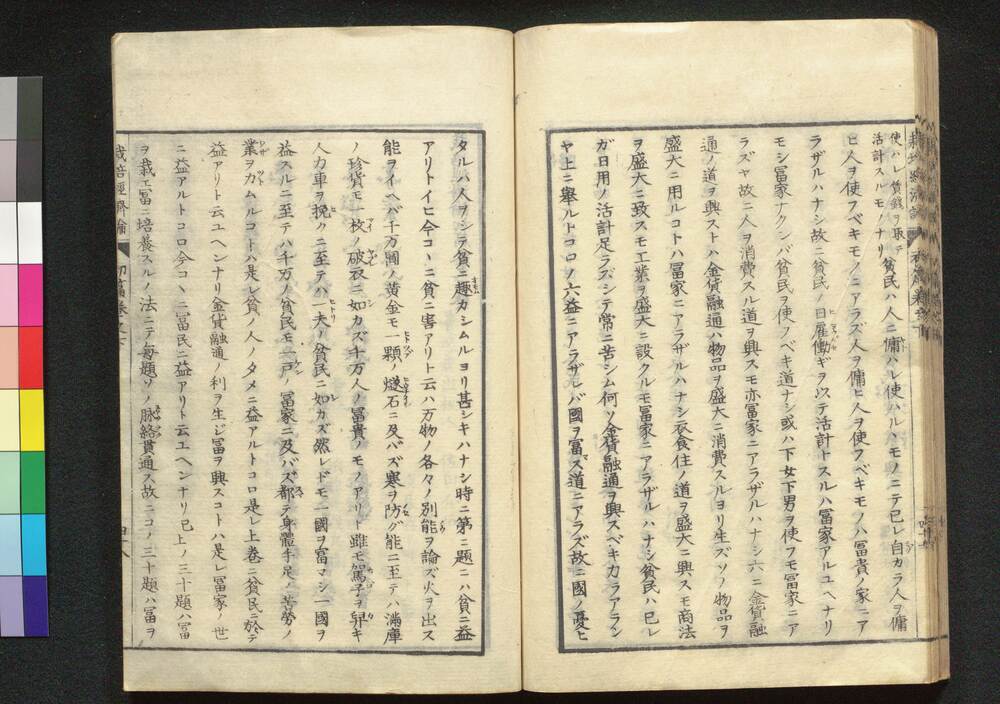 使ハレ賃錢ヲ取テ
活計スルモノナリ
貧民ハ人ニ傭ハレ使ハルヽモノニテ已レ自カラ人ヲ傭
ヒ人ヲ使フベキモノニアラズ人ヲ傭ヒ人ヲ使フベキモノハ冨貴ノ家ニア
ラザルハナシ故ニ貧民ノ日雇働ギヲ以テ活計トスルハ冨家アルユヘナリ
モシ冨家ナクンバ貧民ヲ使フベキ道ナシ或ハ下女下男ヲ使フモ冨家ニア
ラズヤ故ニ人ヲ消費スル道ヲ興スモ亦冨家ニアラザルハナシ六ニ金貨融
通ノ道ヲ興ストハ金貨融通ハ物品ヲ盛大ニ消費スルヨリ生ズソノ物品ヲ
盛大ニ用ルコトハ冨家ニアラザルハナシ衣食住ノ道ヲ盛大ニ興スモ商法
ヲ盛大ニ致スモ工業ヲ盛大ニ設クルモ冨家ニアラザルハナシ貧民ハ已レ
ガ日用ノ活計足ラズシテ常ニ苦シム何ソ金貨融通ヲ興スベキ力ラアラン
ヤ上ニ舉ルトコロノ六益ニアラザレバ國ヲ冨ス道ニアラズ故ニ國ノ憂ヒ
タルハ人ヲシテ貧ニ趣カシムルヨリ甚シキハナシ時ニ第二題ニハ貧ニ益
アリトイヒ今コヽニ貧ニ害アリト云ハ万物ノ各々ノ別能ヲ論ズ火ヲ出ス
能ヲイヘバ千万圓ノ黄金モ一顆ノ燧石ニ及バズ寒ヲ防グ能ニ至テハ滿庫
ノ珍貨モ一枚ノ破衣ニ如カズ千万人ノ冨貴ノモノアリト雖モ駕子ヲ舁キ
人力車ヲ挽クニ至テハ一夫ノ貧民ニ如カズ然レドモ一國ヲ富マシ一國ヲ
益スルニ至テハ千万ノ貧民モ一戸ノ冨家ニ及バズ都テ身體手足ノ苦勞ノ
業ヲカムルコトハ是レ貧ノ人ノタメニ益アルトコロ是レ上巻ニ貧民ニ於テ
益アリト云ユヘンナリ金貨融通ノ利ヲ生ジ冨ヲ興スコトハ是レ冨家ノ世
ニ益アルトコロ今コヽニ冨民ニ益アリト云ユヘンナリ已上ノ三十題ハ冨
ヲ栽エ冨ニ培養スルノ法ニテ毎題ソノ脉絡貫通ス故ニコノ三十題ハ冨ヲ
栽培經濟論
初篇巻之下